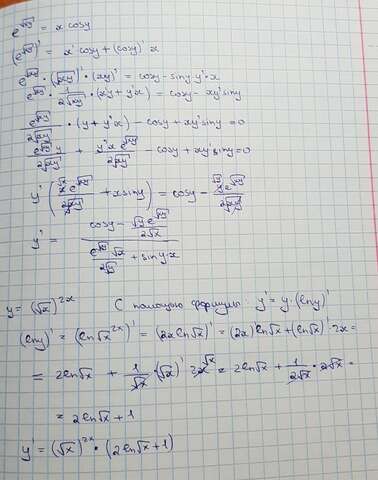 e^√xy = x cosy
(e^√xy)' = x' cosy + (cosy)' x
e^√xy · (√xy)' · (xy)' = cosy - siny · y' · x
e^√xy · 1/(2√xy) · (x'y + y'x) = cosy - xy' siny
e^√xy/(2√xy) · (y + y'x) - cosy + xy' siny = 0
e^√xy y/(2√xy) + y'x e^√xy/(2√xy) - cosy + xy' siny = 0
y' (√x e^√xy/(2√xy) + x siny) = cosy - √y e^√xy/(2√xy)
y' = (cosy - √y e^√xy/(2√x))/(e^√xy √x/(2√y) + siny · x)
y = (√x)^2x С помощью формулы: y' = y · (lny)'
(lny)' = (ln√x^2x)' = (2x ln√x)' = (2x)' ln√x + (ln√x)' 2x =
= 2ln√x + 1/√x · (√x)' · 2x^√x = 2ln√x + 1/(2√x) · 2√x =
= 2ln√x + 1
y' = (√x)^2x · (2ln√x + 1)